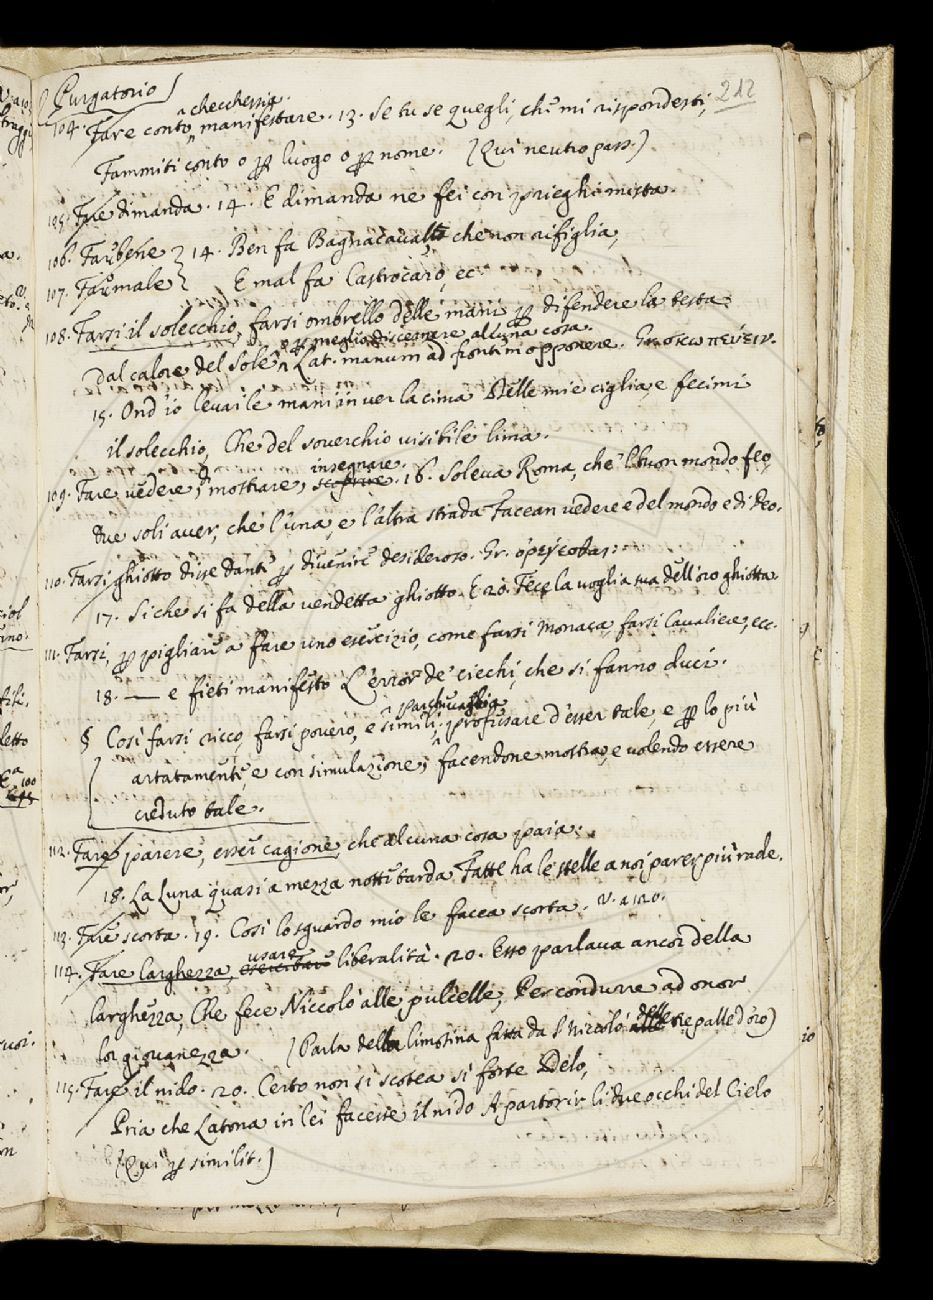 Purgatorio
212
104. Fare conto checchessia, manifestare. 13. Se tu se quegli, che mi rispondesti,
Fammiti conto o ꝑ luogo o ꝑ nome. (Qui neutro pass.)
105. Fare dimanda. 14. E dimanda ne fei con prieghi mista.
106. Far bene } 14. Ben fa Bagnacavallo che non rifiglia,
107. Far male } E mal fa Castrocaro, ec.
108. Farsi il solecchio, farsi ombrello delle mani ꝑ difendere la testa
o ꝑ meglio discernere alcuna cosa.
dal calore del Sole, Lat. manum ad frontem opponere. Gr.
15. Ond'io levai le mani in ver la cima Delle mie ciglia, e fecimi
il solecchio, Che del soverchio visibile lima.
insegnare.
109. Fare vedere, mostrare, scoprire. 16. Soleva Roma, che 'l buon mondo feo,
due soli aver, che l'una, e l'altra strada Facean vedere e del mondo e di Deo.
110. Farsi ghiotto disse Dante ꝑ divenire desideroso. Gr.
17. Si che si fa della vendetta ghiotto. E 20. Fece la voglia sua dell'oro ghiotta.
111. Farsi, ꝑ pigliare a fare uno esercizio, come farsi Monaca, farsi Cavaliere, ecc.
18. — e fieti manifesto L'error de' ciechi, che si fanno duci.
§ Così farsi ricco, farsi povero, e simili, professare d'esser tale, e ꝑ lo più
artatamente, e con simulazione, facendone mostra, e volendo essere
creduto tale.
112. Fare parere, esser cagione, che alcuna cosa paia.
18. La Luna quasi a mezza notte tarda Fatte ha le stelle a noi parer più rade.
113. Fare scorta. 19. Così lo sguardo mio le facea scorta. V. a 120.
usare
114. Fare larghezza, esercitare liberalità. 20. Esso parlava ancor della
larghezza, Che fece Niccolò alle pulcelle, Per condurre ad onor
lor giovanezza. (Parla della limosina fatta da S. Niccolò delle tre palle d'oro)
115. Fare il nido. 20. Certo non si scotea si forte Delo,
Pria che Latona in lei facesse il nido A partorir li due occhi del Cielo
(Qui ꝑ similit.)